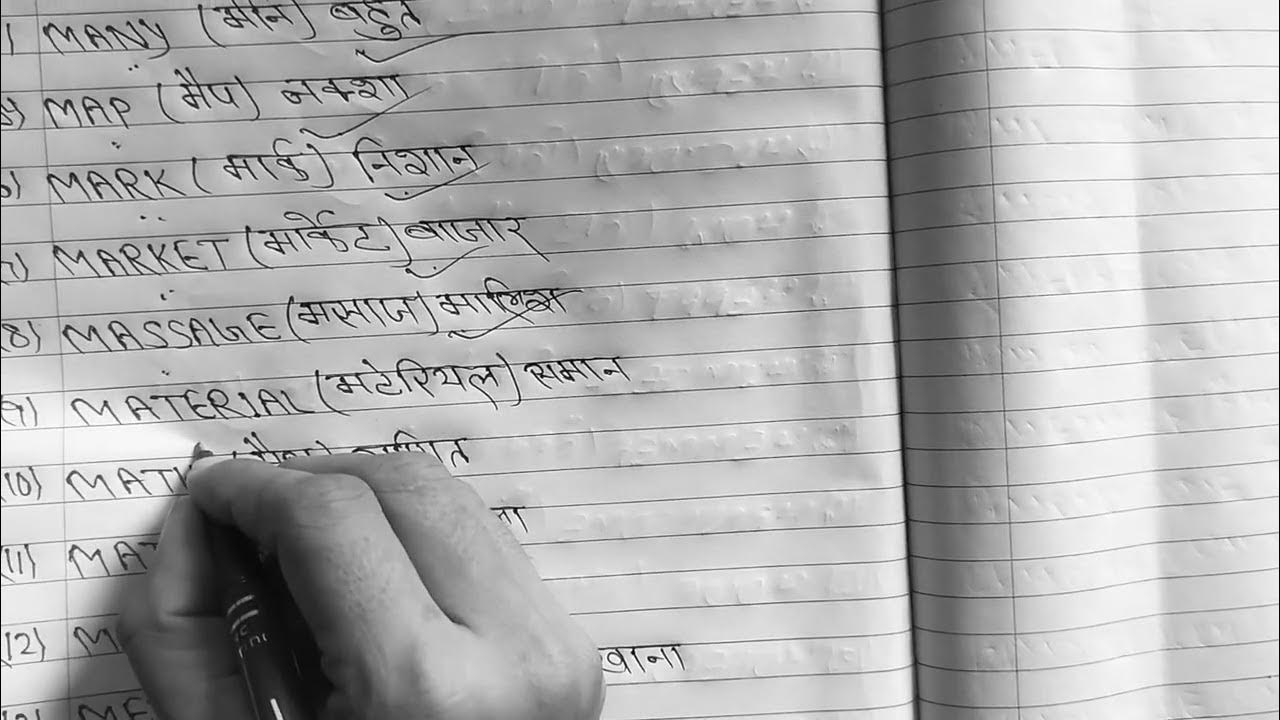 ) MANY (मेनि) बहुत
5) MAP (मैप) नक्शा
6) MARK (मार्क) निशान
7) MARKET (मार्केट) बाज़ार
(8) MASSAGE (मसाज) मालिश
(9) MATERIAL (मटेरियल) समान
(10) गणित
(11) MAT
(12) खाना
ME